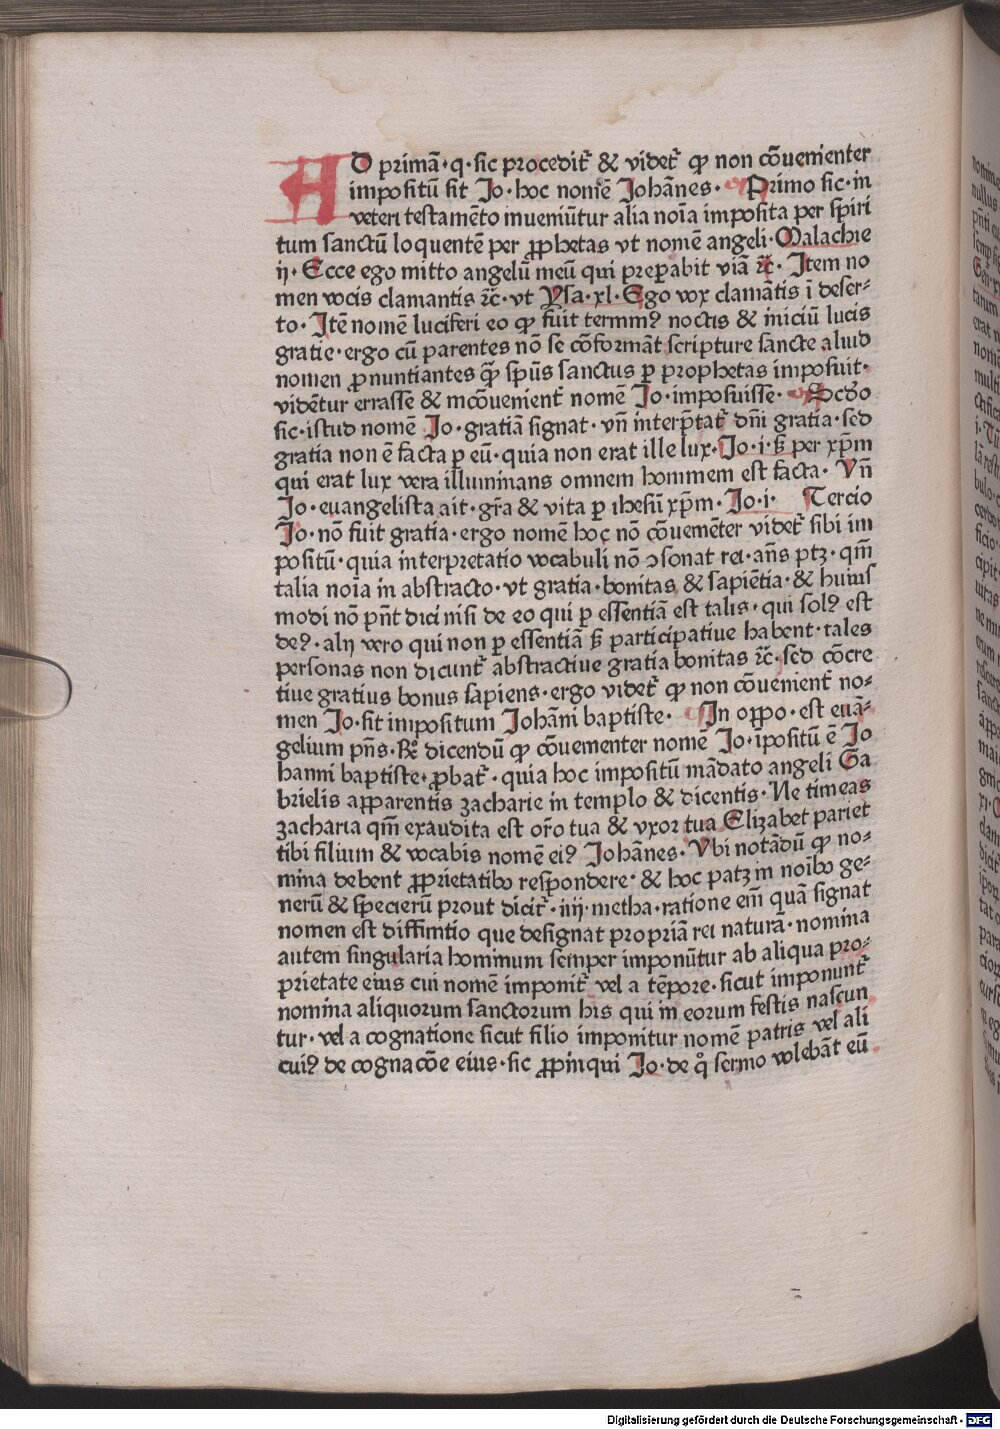 AD primā·q·sic procedit᷑ & videt᷑ ꝙ non cōuenienter
impositū sit Jo·hoc nomē Johānes· Primo sic·in
veteri testamēto inueniūtur alia noīa imposita per spiri
tum sanctū loquentē per ꝓphetas vt nomē angeli·Malachie
ij· Ecce ego mitto angelū meū qui preꝑabit viā ⁊c̄· Item no
men vocis clamantis ⁊c̄·vt Ysa·xl·Ego vox clamātis ī deser⸗
to·Itē nomē luciferi eo ꝙ fuit terminꝰ noctis & iniciū lucis
gratie·ergo cū parentes nō se cōformāt scripture sancte aliud
nomen ꝓnuntiantes q̄ꝫ spūs sanctus ꝑ prophetas imposuit·
vidētur errasse & incōuenient᷑ nomē Jo·imposuisse· Scďo
sic·istud nomē Jo·gratiā signat·vn̄ interp̄tat᷑ dn̄i gratia·sed
gratia non ē facta ꝑ eū·quia non erat ille lux·Jo·i·sꝫ per xp̄m
qui erat lux vera illuminans omnem hominem est facta· Vn̄
Jo·euangelista ait·gr̄a & vita ꝑ ihesū xp̄m·Jo·i· Tercio
Jo·nō fuit gratia·ergo nomē hoc nō cōuenienter videt᷑ sibi im
positū·quia interpretatio vocabuli nō ↄsonat rei·an̄s ptꝫ·qm̄
talia noīa in abstracto·vt gratia·bonitas & sapiētia·& huius
modi nō pn̄t dici nisi de eo qui ꝑ essentiā est talis·qui solꝰ est
deꝰ·alij vero qui non ꝑ essentiā sꝫ participatiue habent·tales
personas non dicunt᷑ abstractiue gratia bonitas ⁊c̄·sed cōcre
tiue gratius bonus sapiens·ergo videt᷑ ꝙ non cōuenient᷑ no⸗
men Jo·sit impositum Johāni baptiste· In oppo·est euā⸗
gelium pn̄s·℞ dicendū ꝙ cōuenienter nomē Jo·īpositū ē Jo
hanni baptiste·ꝓbat᷑·quia hoc impositū mādato angeli Ga
brielis apparentis zacharie in templo & dicentis·Ne timeas
zacharia qm̄ exaudita est or̄o tua & vxor tua Elizabet pariet
tibi filium & vocabis nomē eiꝰ Johānes·Vbi notādū ꝙ no⸗
mina debent ꝓprietatibꝰ respondere·& hoc patꝫ in noībꝰ ge⸗
nerū & specierū prout dicit᷑·iiij·metha·ratione em̄ quā signat
nomen est diffinitio que designat propriā rei naturā·nomina
autem singularia hominum semper imponūtur ab aliqua pro⸗
prietate eius cui nomē imponit᷑ vel a tēpore·sicut imponunt᷑
nomina aliquorum sanctorum his qui in eorum festis nascun
tur·vel a cognatione sicut filio imponitur nomē patris vel ali
cuiꝰ de cognacōe eius·sic ꝓpinqui Jo·de q̊ sermo volebāt eū
Digitalisierung gefördert durch die Deutsche Forschungsgemeinschaft · DFG